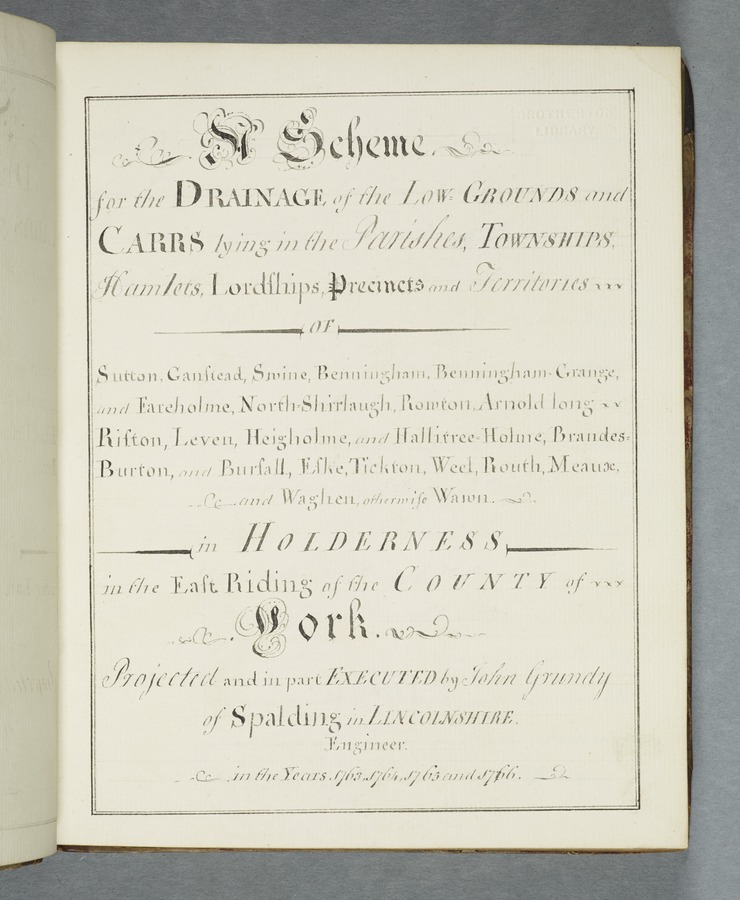 A Scheme.
for the DRAINAGE of the LOW-GROUNDS and
CARRS lying in the Parishes, TOWNSHIPS,
Hamlets, Lordſhips, Precincts and Territories
OF
Sutton, Ganſtead, Swine, Benningham, Benningham-Grange,
and Fareholme, North-Shirlaugh, Rowton, Arnold long
Riſton, Leven, Heigholme, and Hallitree-Holme, Brandes=
Burton, and Burſall, Eſke, Tickton, Weel, Routh, Meaux,
and Waghen, otherwiſe Wawn.
in HOLDERNESS
in the Eaſt Riding of the COUNTY of
York.
Projected and in part EXECUTED by John Grundy
of Spalding in LINCOLNSHIRE.
Engineer.
in the Years 1763, 1764, 1765 and 1766.